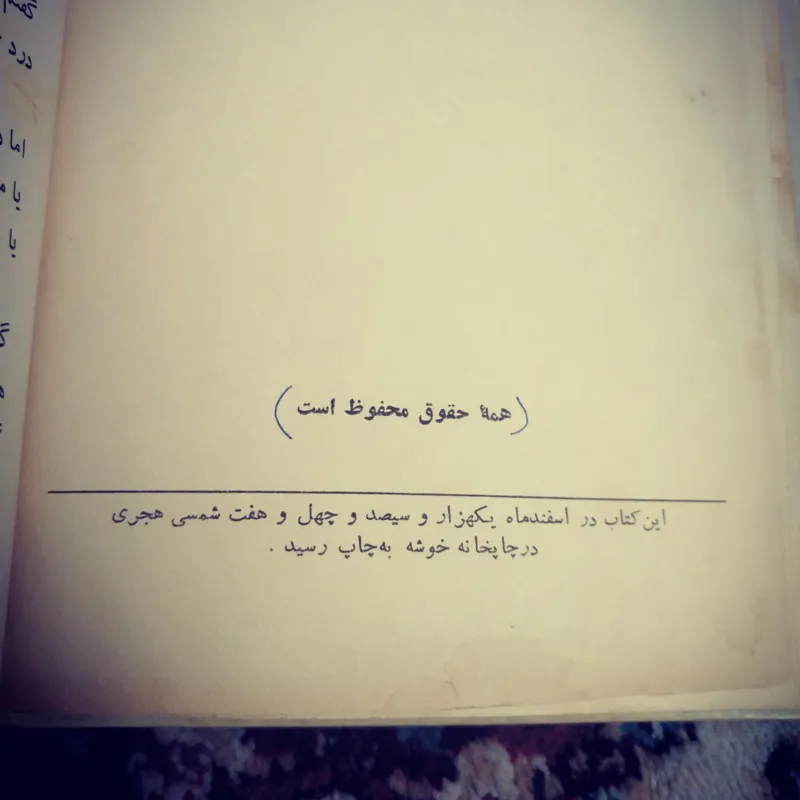 درد
اما
با
(همهٔ حقوق محفوظ است)
این کتاب در اسفندماه یکهزار و سیصد و چهل و هفت شمسی هجری
درچاپخانه خوشه به‌چاپ رسید .